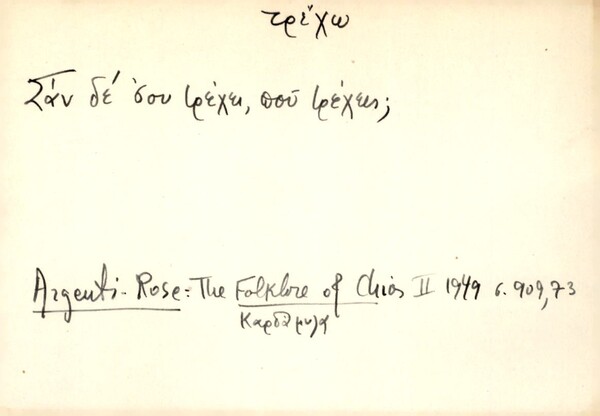 τρέχω
Σάν δέ σου τρέχει, ποῦ τρέχεις;
Argenti-Rose: The Folklore of Chios II 1949 σ. 909,73
Καρδάμυλα